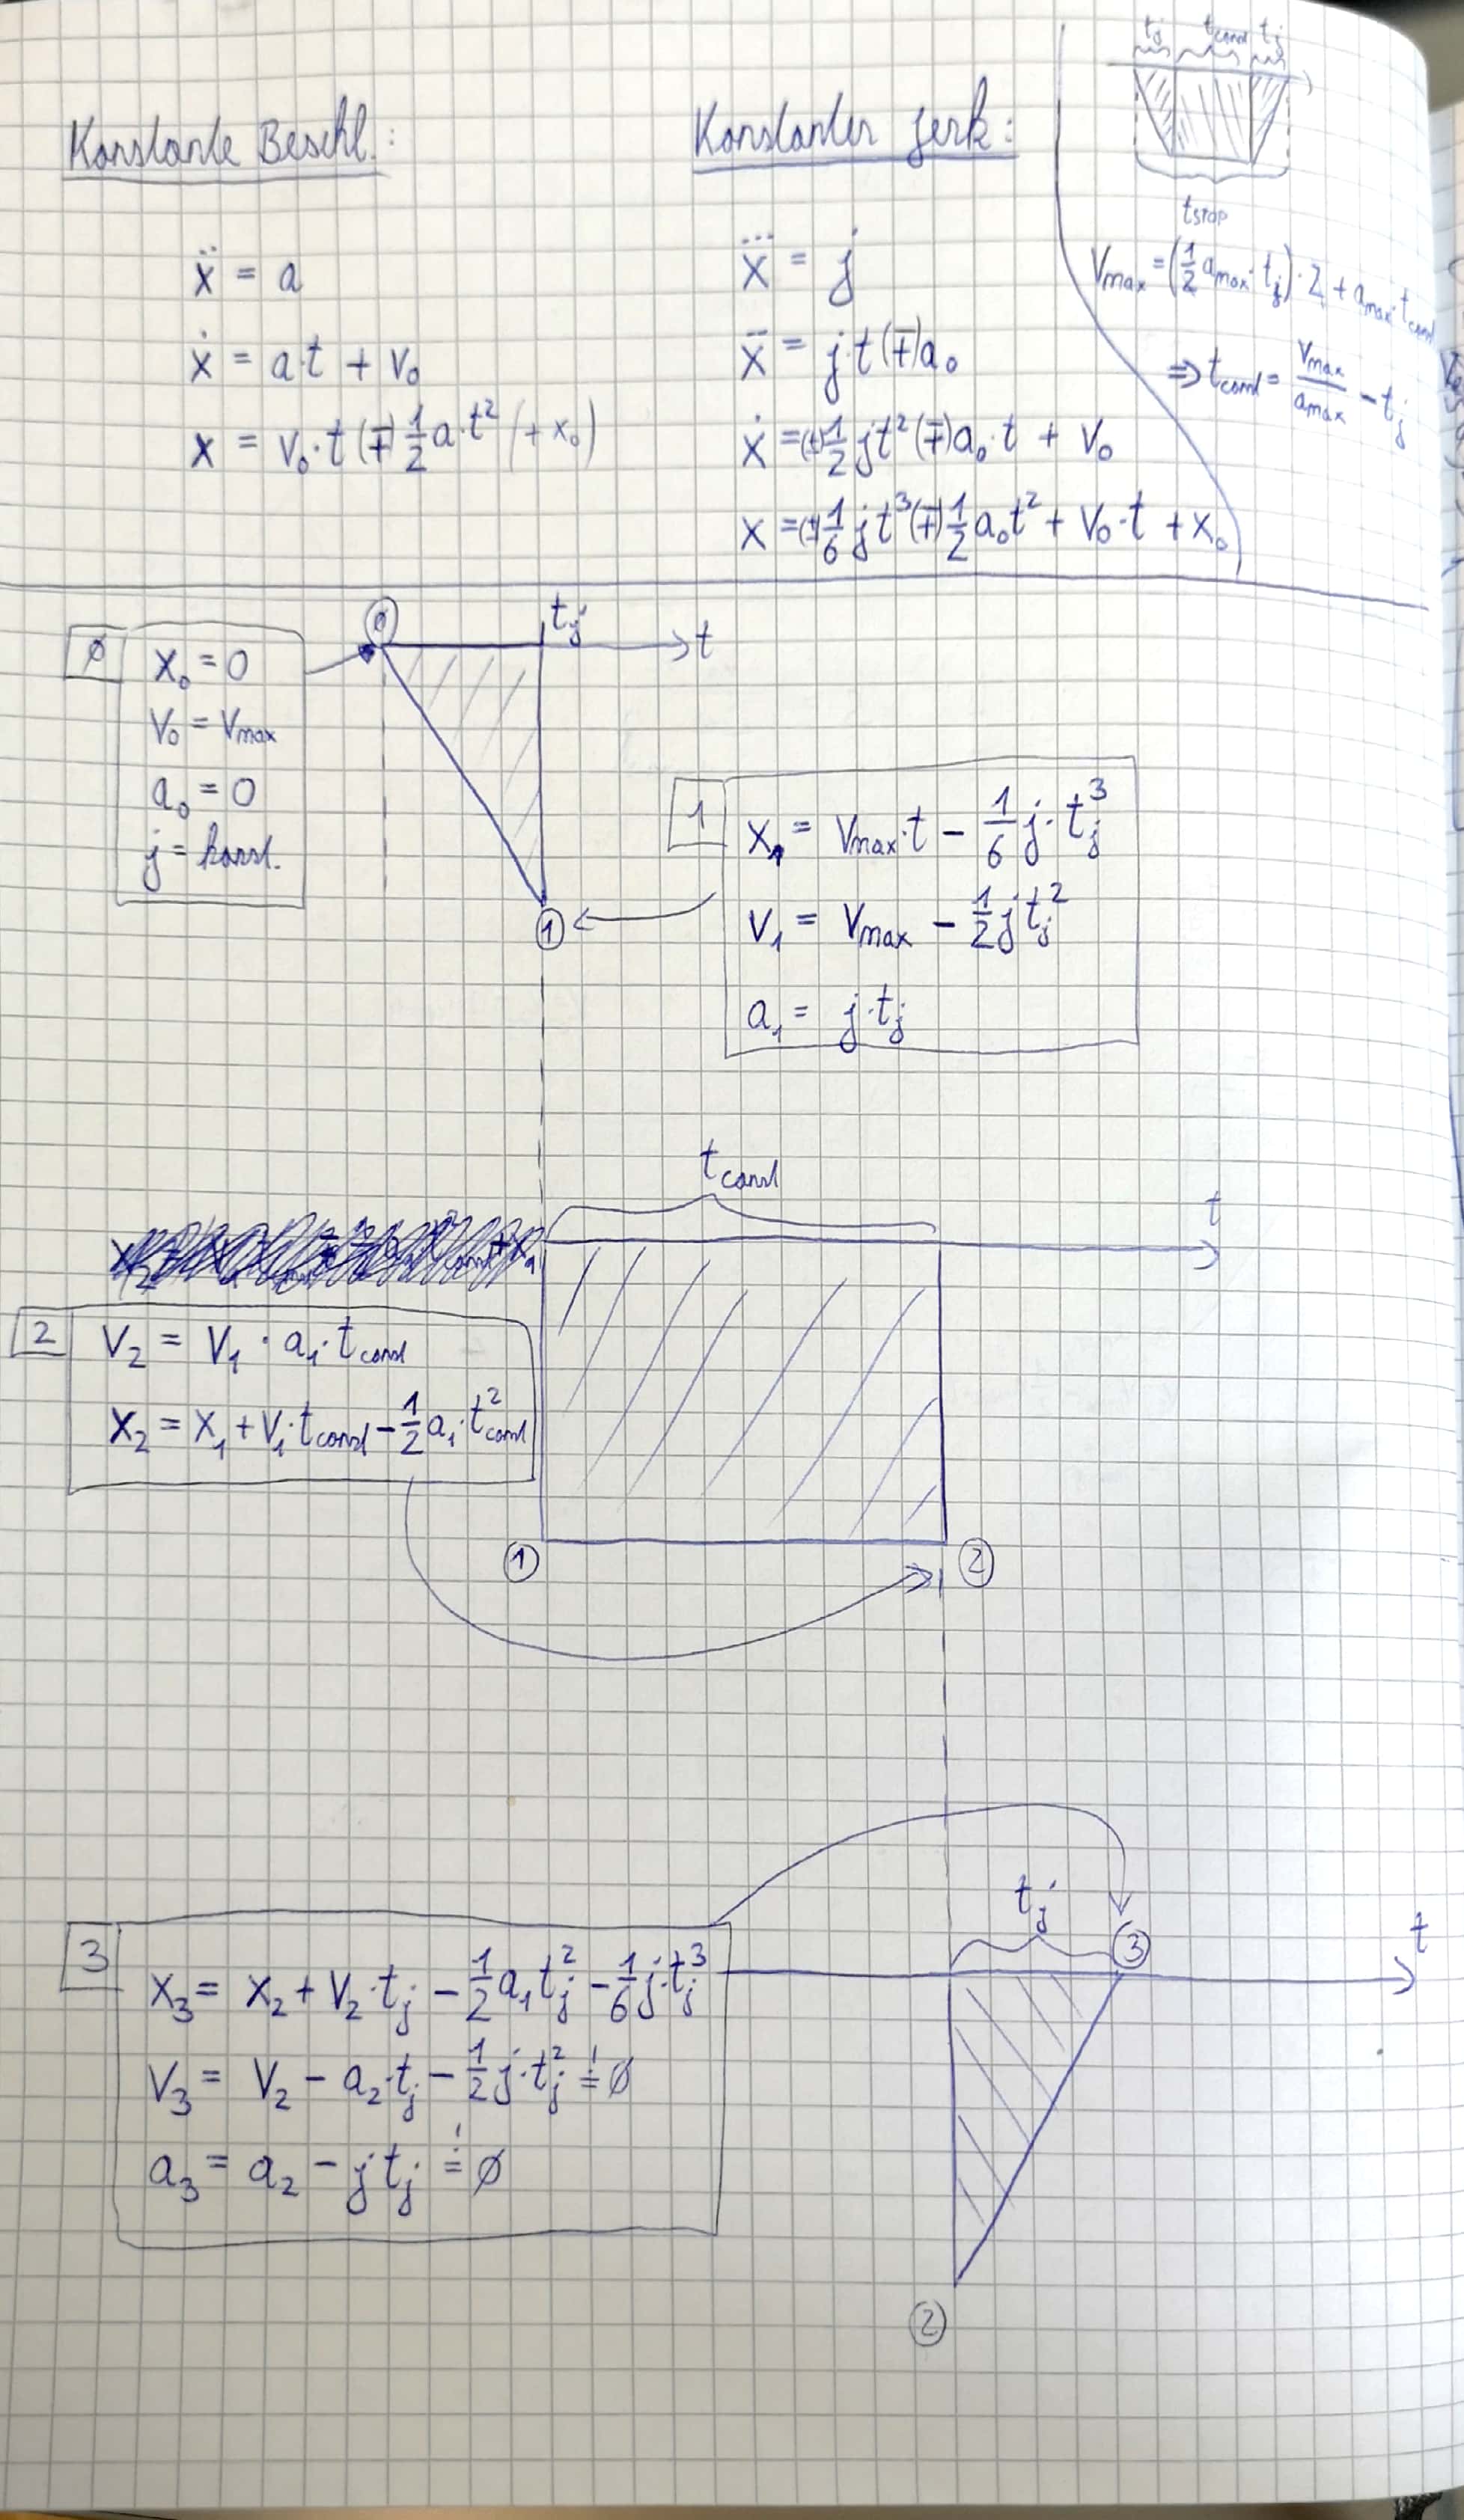 Konstante Beschl.:
ẍ = a
ẋ = a·t + v₀
x = v₀·t (∓) ½ a·t² (+ x₀)
Konstanter Jerk:
x⃛ = j
ẍ = j·t (∓) a₀
ẋ = (±) ½ jt² (∓) a₀·t + v₀
x = (±) 1/6 jt³ (∓) ½ a₀t² + v₀·t + x₀
t_j t_const t_j
t_stop
v_max = (½ a_max · t_j) · 2 + a_max · t_const
⇒ t_const = v_max/a_max − t_j
0
x₀ = 0
v₀ = v_max
a₀ = 0
j = konst.
0 t_j t
1
1
x₁ = v_max·t − 1/6 j·t_j³
v₁ = v_max − ½ jt_j²
a₁ = j·t_j
t_const t
2
v₂ = v₁ · a₁·t_const
x₂ = x₁ + v₁·t_const − ½ a₁·t_const²
1 2
3
x₃ = x₂ + v₂·t_j − ½ a₁t_j² − 1/6 j·t_j³
v₃ = v₂ − a₂·t_j − ½ j·t_j² =! 0
a₃ = a₂ − jt_j =! 0
t_j 3 t
2